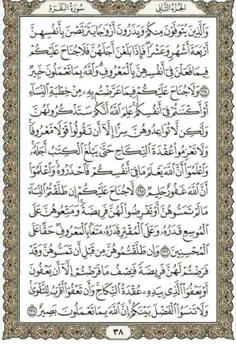 الجزء الثاني سورة البقرة
والذين يتوفون منكم ويذرون أزواجا يتربصن بأنفسهن
أربعة أشهر وعشرا فإذا بلغن أجلهن فلا جناح عليكم
فيما فعلن في أنفسهن بالمعروف والله بما تعملون خبير
ولا جناح عليكم فيما عرضتم به من خطبة النساء
أو أكننتم في أنفسكم علم الله أنكم ستذكرونهن
ولكن لا تواعدوهن سرا إلا أن تقولوا قولا معروفا
ولا تعزموا عقدة النكاح حتى يبلغ الكتاب أجله
واعلموا أن الله يعلم ما في أنفسكم فاحذروه واعلموا
أن الله غفور حليم لا جناح عليكم إن طلقتم النساء
ما لم تمسوهن أو تفرضوا لهن فريضة ومتعوهن على
الموسع قدره وعلى المقتر قدره متاعا بالمعروف حقا على
المحسنين وإن طلقتموهن من قبل أن تمسوهن وقد
فرضتم لهن فريضة فنصف ما فرضتم إلا أن يعفون
أو يعفوا الذي بيده عقدة النكاح وأن تعفوا أقرب للتقوى
ولا تنسوا الفضل بينكم إن الله بما تعملون بصير
٣٨